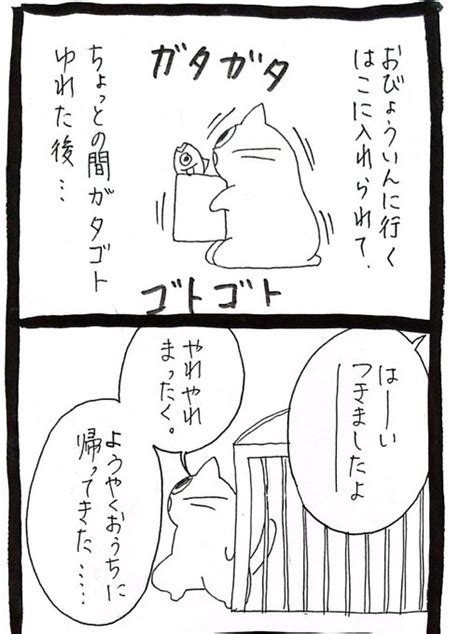 おびょういんに行く
はこに入れられて、
ガタガタ
ちょっとの間ガタゴト
ゆれた後…
ゴトゴト
はーい
つきましたよ
やれやれ
まったく。
ようやくおうちに
帰ってきた……